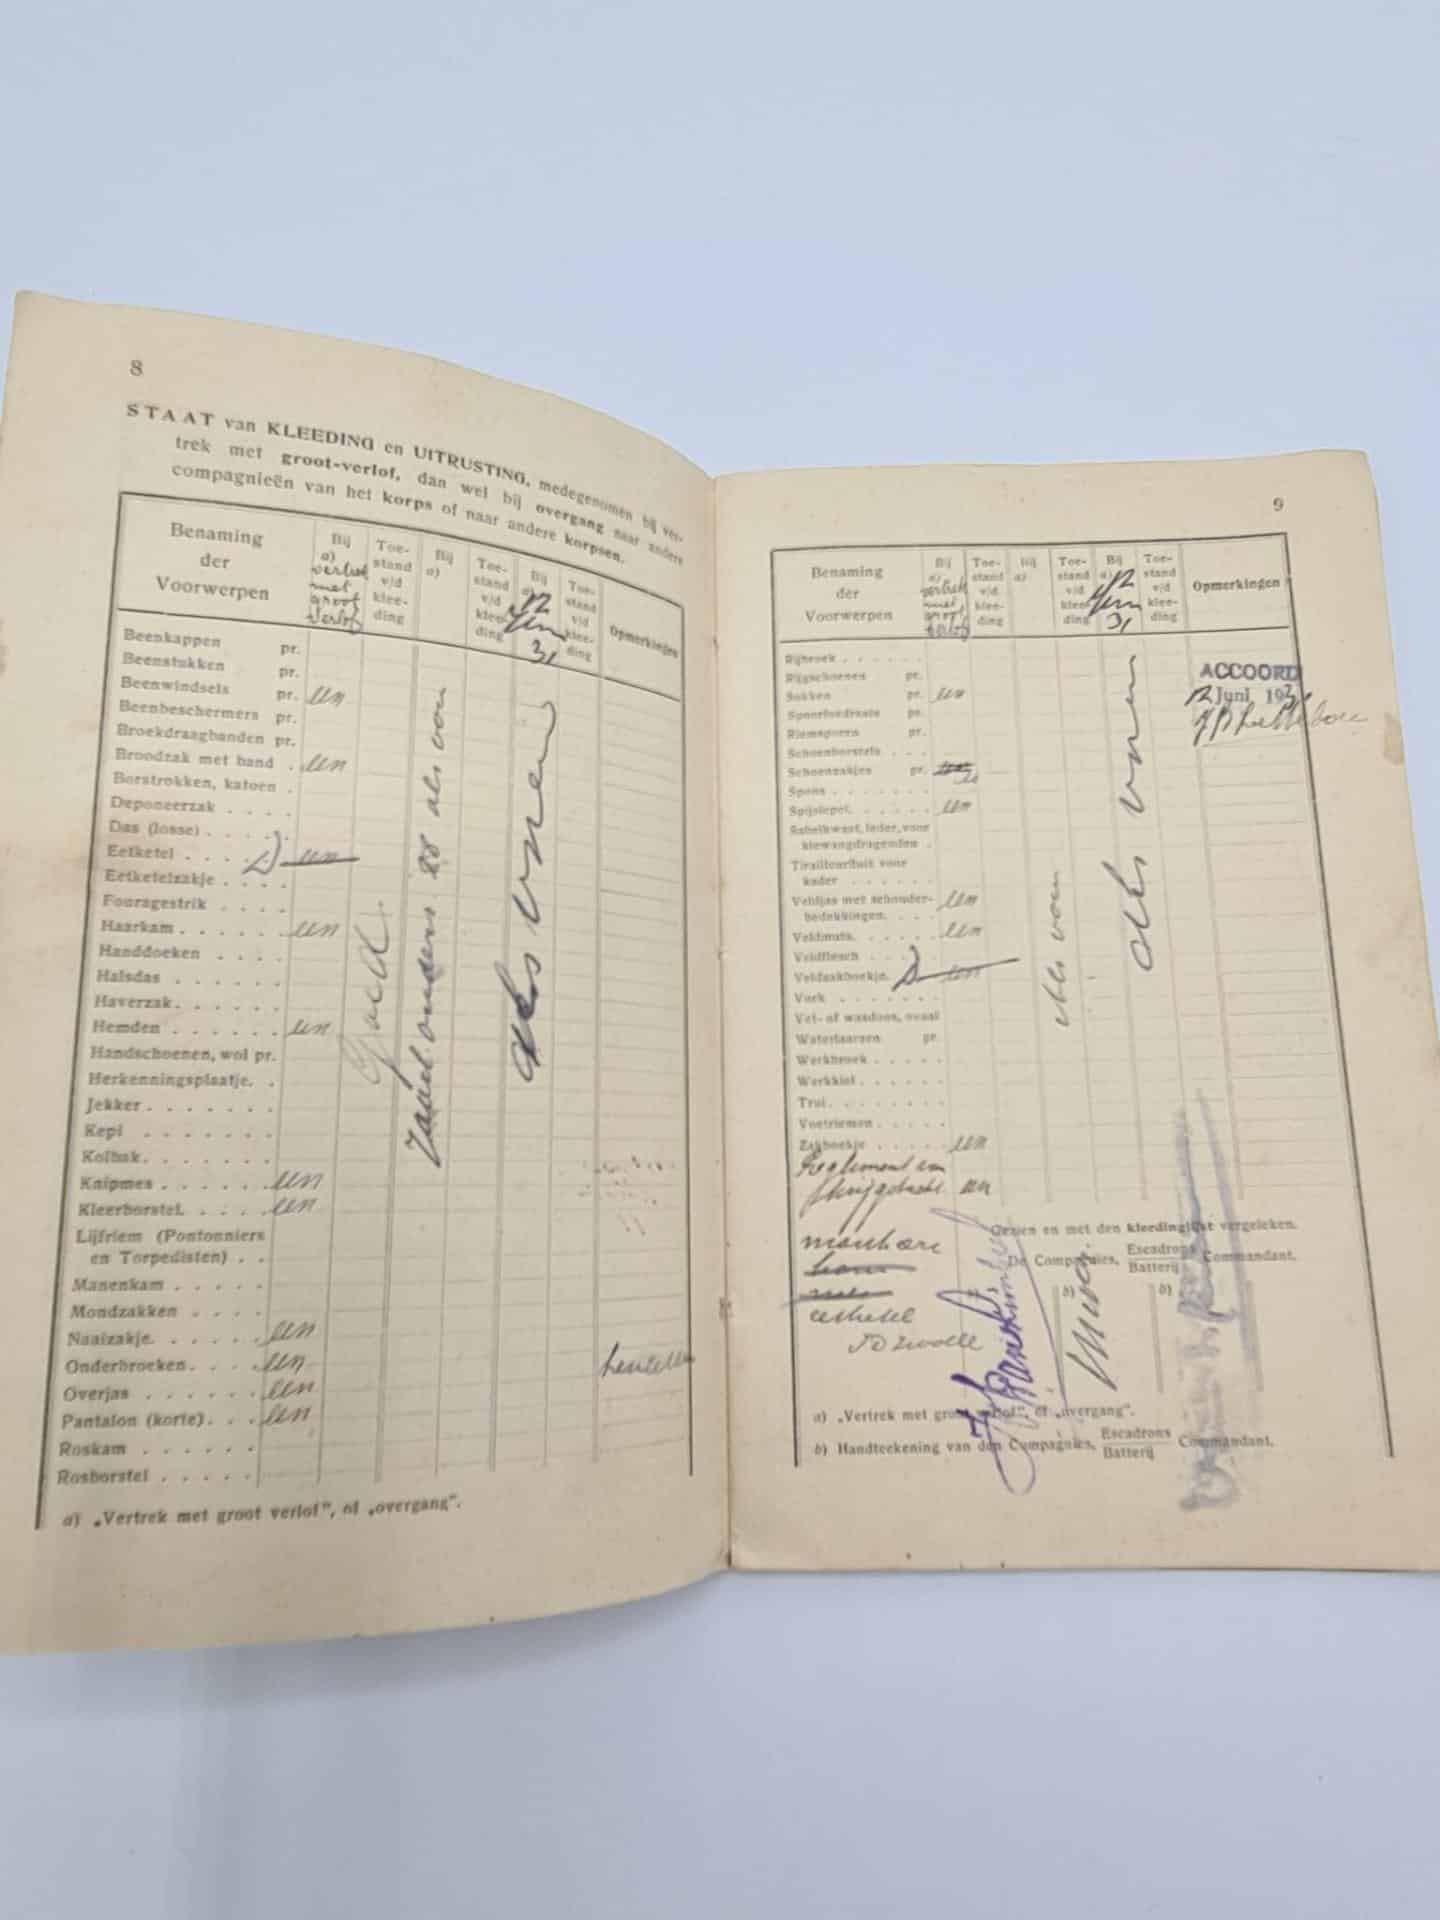 8
STAAT van KLEEDING en UITRUSTING, medegenomen bij ver-
trek met groot-verlof, dan wel bij overgang naar andere
compagnieën van het korps of naar andere korpsen.
Benaming der Voorwerpen
Bij a) vertrek met groot verlof
Toe- stand v/d klee- ding
Bij a)
Toe- stand v/d klee- ding
Bij a) 12 Juni 31
Toe- stand v/d klee- ding
Opmerkingen
Beenkappen pr.
Beenstukken pr.
Beenwindsels pr. een
Beenbeschermers pr.
Broekdraagbanden pr.
Broodzak met band . een
Borstrokken, katoen .
Deponeerzak . . . .
Das (losse) . . . . .
Eetketel . . . . een
Eetketelzakje . . . .
Fouragestrik . . . .
Haarkam . . . . . . een
Handdoeken . . . .
Halsdas . . . . . .
Haverzak . . . . . .
Hemden . . . . . . een
Handschoenen, wol pr.
Herkenningsplaatje. .
Jekker . . . . . . .
Kepi . . . . . . .
Kolbak . . . . . . .
Knipmes . . . . . . een
Kleerborstel . . . . . een
Lijfriem (Pontonniers
en Torpedisten) . .
Manenkam . . . . .
Mondzakken . . . .
Naaizakje . . . . . . een
Onderbroeken . . . . een
Overjas . . . . . . een
Pantalon (korte) . . . een
Roskam . . . . . .
Rosborstel . . . . .
Goed
als voren
a) „Vertrek met groot verlof", of „overgang".
9
Benaming der Voorwerpen
Bij a) vertrek met groot verlof
Toe- stand v/d klee- ding
Bij a)
Toe- stand v/d klee- ding
Bij a) 12 Juni 31
Toe- stand v/d klee- ding
Opmerkingen
Rijbroek . . . . . .
Rijgschoenen pr.
Sokken pr. een
Spoorfoedraals pr.
Riemsporen pr.
Schoenborstels . . .
Schoenzakjes pr.
Spons . . . . . . .
Spijslepel . . . . . . een
Sabelkwast, leder, voor
klewangdragenden .
Tirailleurfluit voor
kader . . . . . .
Veldjas met schouder-
bedekkingen . . . . een
Veldmuts . . . . . . een
Veldflesch . . . . .
Veldzakboekje . een
Vork . . . . . . .
Vet- of wasdoos, ovaal
Waterlaarzen pr.
Werkbroek . . . . .
Werkkiel . . . . . .
Trui . . . . . . .
Voetriemen . . . . .
Zakboekje . . . . . een
Reglement een
krijgstucht een
eetketel
als voren
als voren
ACCOORD
12 Juni 1931
Gezien en met den kleedinglijst vergeleken.
De Compagnies, Escadrons Batterij Commandant.
b) b)
a) „Vertrek met groot verlof", of „overgang".
b) Handteekening van den Compagnies, Escadrons Batterij Commandant.